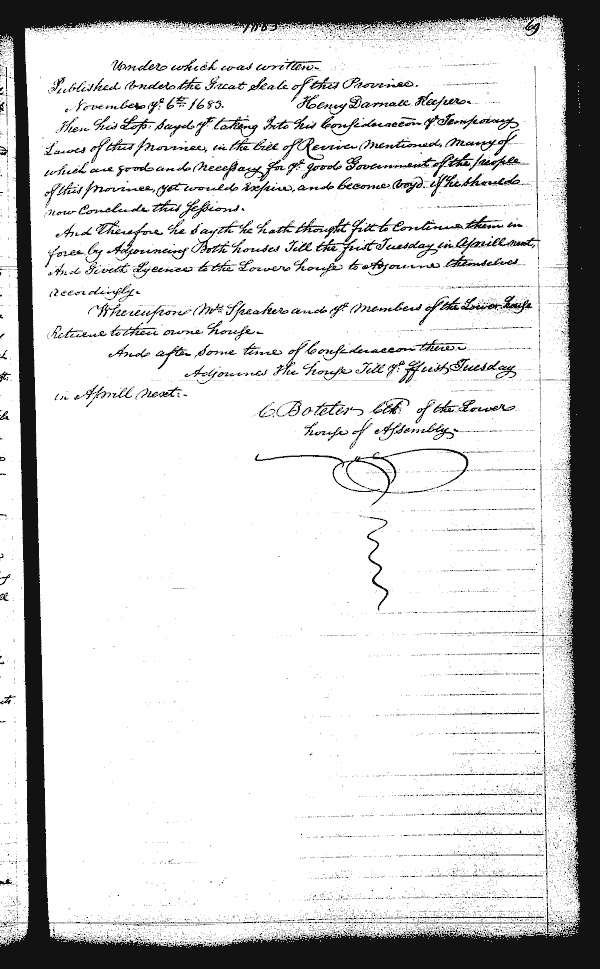 1683
69
Under which was written.
Published Under the Great Seale of this Province.
November ye. 6th. 1683. Henry Darnall Keeper.
Then his Losp. Sayd yt. taking Into his Consideraccon ye Temporary
Lawes of this Province, in the bill of Reviver Mentioned, Many of
which are good and necessary for ye. good Government of the people
of this Province, yet would Expire, and become voyd. if he should
now Conclude this Sessions.
And Therefore he Sayth he hath thought fitt to Continue them in
force by Adjourning Both houses Till the first Tuesday in Aprill next,
And Giveth Lycence to the Lower house to Adjourne themselves
accordingly.
Whereupon Mr. Speaker and ye. Members of the Lower house
Returne to their owne house.
And after Some time of Consideraccon there.
Adjournes the house Till ye. ffirst Tuesday
in Aprill next.
C. Boteler Clk of the Lower
house of Assembly.